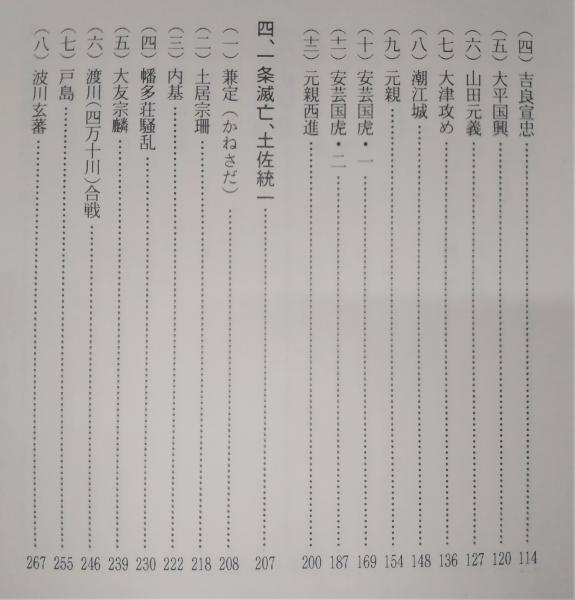 (四) 吉良宣忠……………………114
(五) 大平国興……………………120
(六) 山田元義……………………127
(七) 大津攻め……………………136
(八) 潮江城……………………148
(九) 元親……………………154
(十) 安芸国虎・一……………………169
(十一) 安芸国虎・二……………………187
(十二) 元親西進……………………200
四、一条滅亡、土佐統一……………………207
(一) 兼定(かねさだ)……………………208
(二) 土居宗珊……………………218
(三) 内基……………………222
(四) 幡多荘騒乱……………………230
(五) 大友宗麟……………………239
(六) 渡川(四万十川)合戦……………………246
(七) 戸島……………………255
(八) 波川玄蕃……………………267